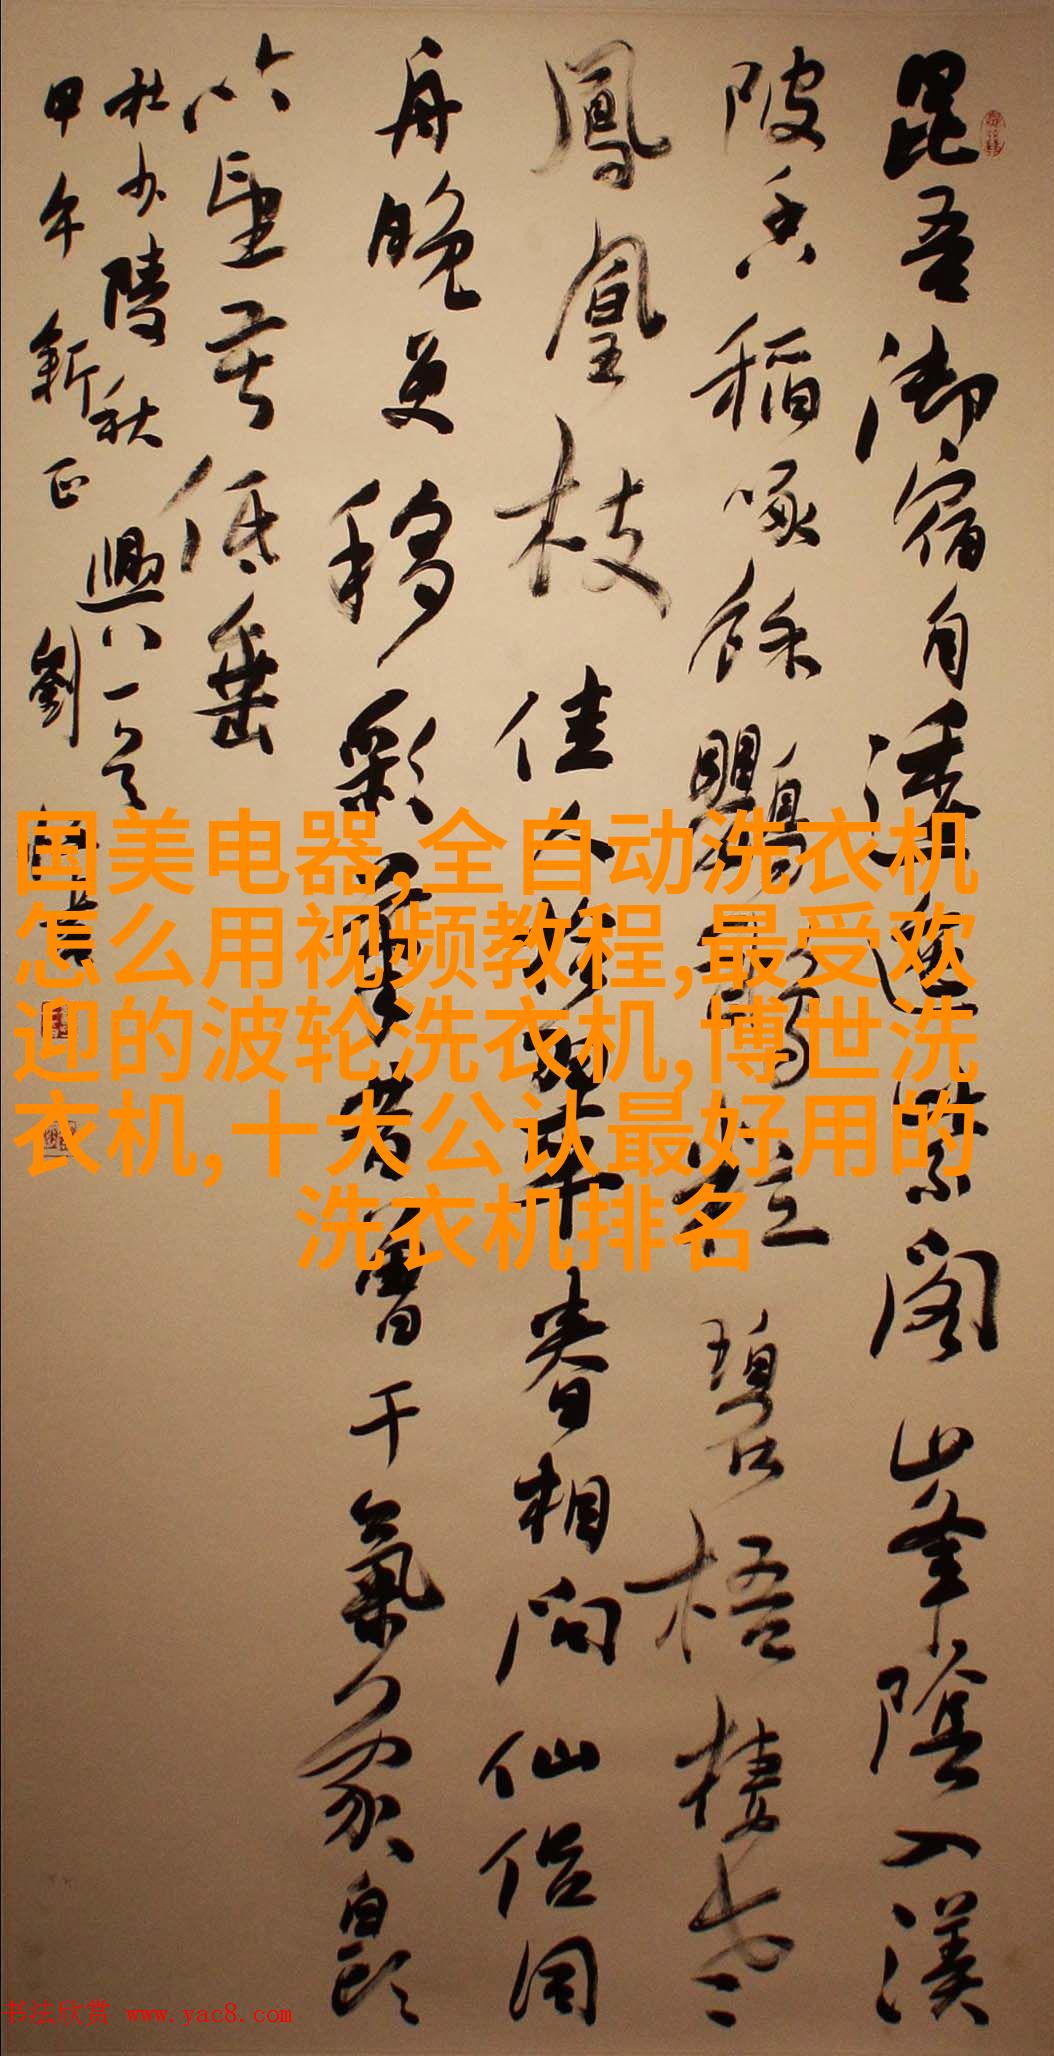 昆吾御宿自逶迤紫閣山峯陰入渼
陂香稻啄餘鸚鵡粒碧梧棲老
鳳凰枝佳人拾翠春相問仙侣同
舟晚更移彩筆昔曾干氣象白頭
吟望苦低垂
杜少陵秋興八一首
甲午新正劉
国美电器,全自动洗衣机
怎么用视频教程,最受欢
迎的波轮洗衣机,博世洗
衣机,十大公认最好用的
洗衣机排名
书法欣赏 www.yac8.com